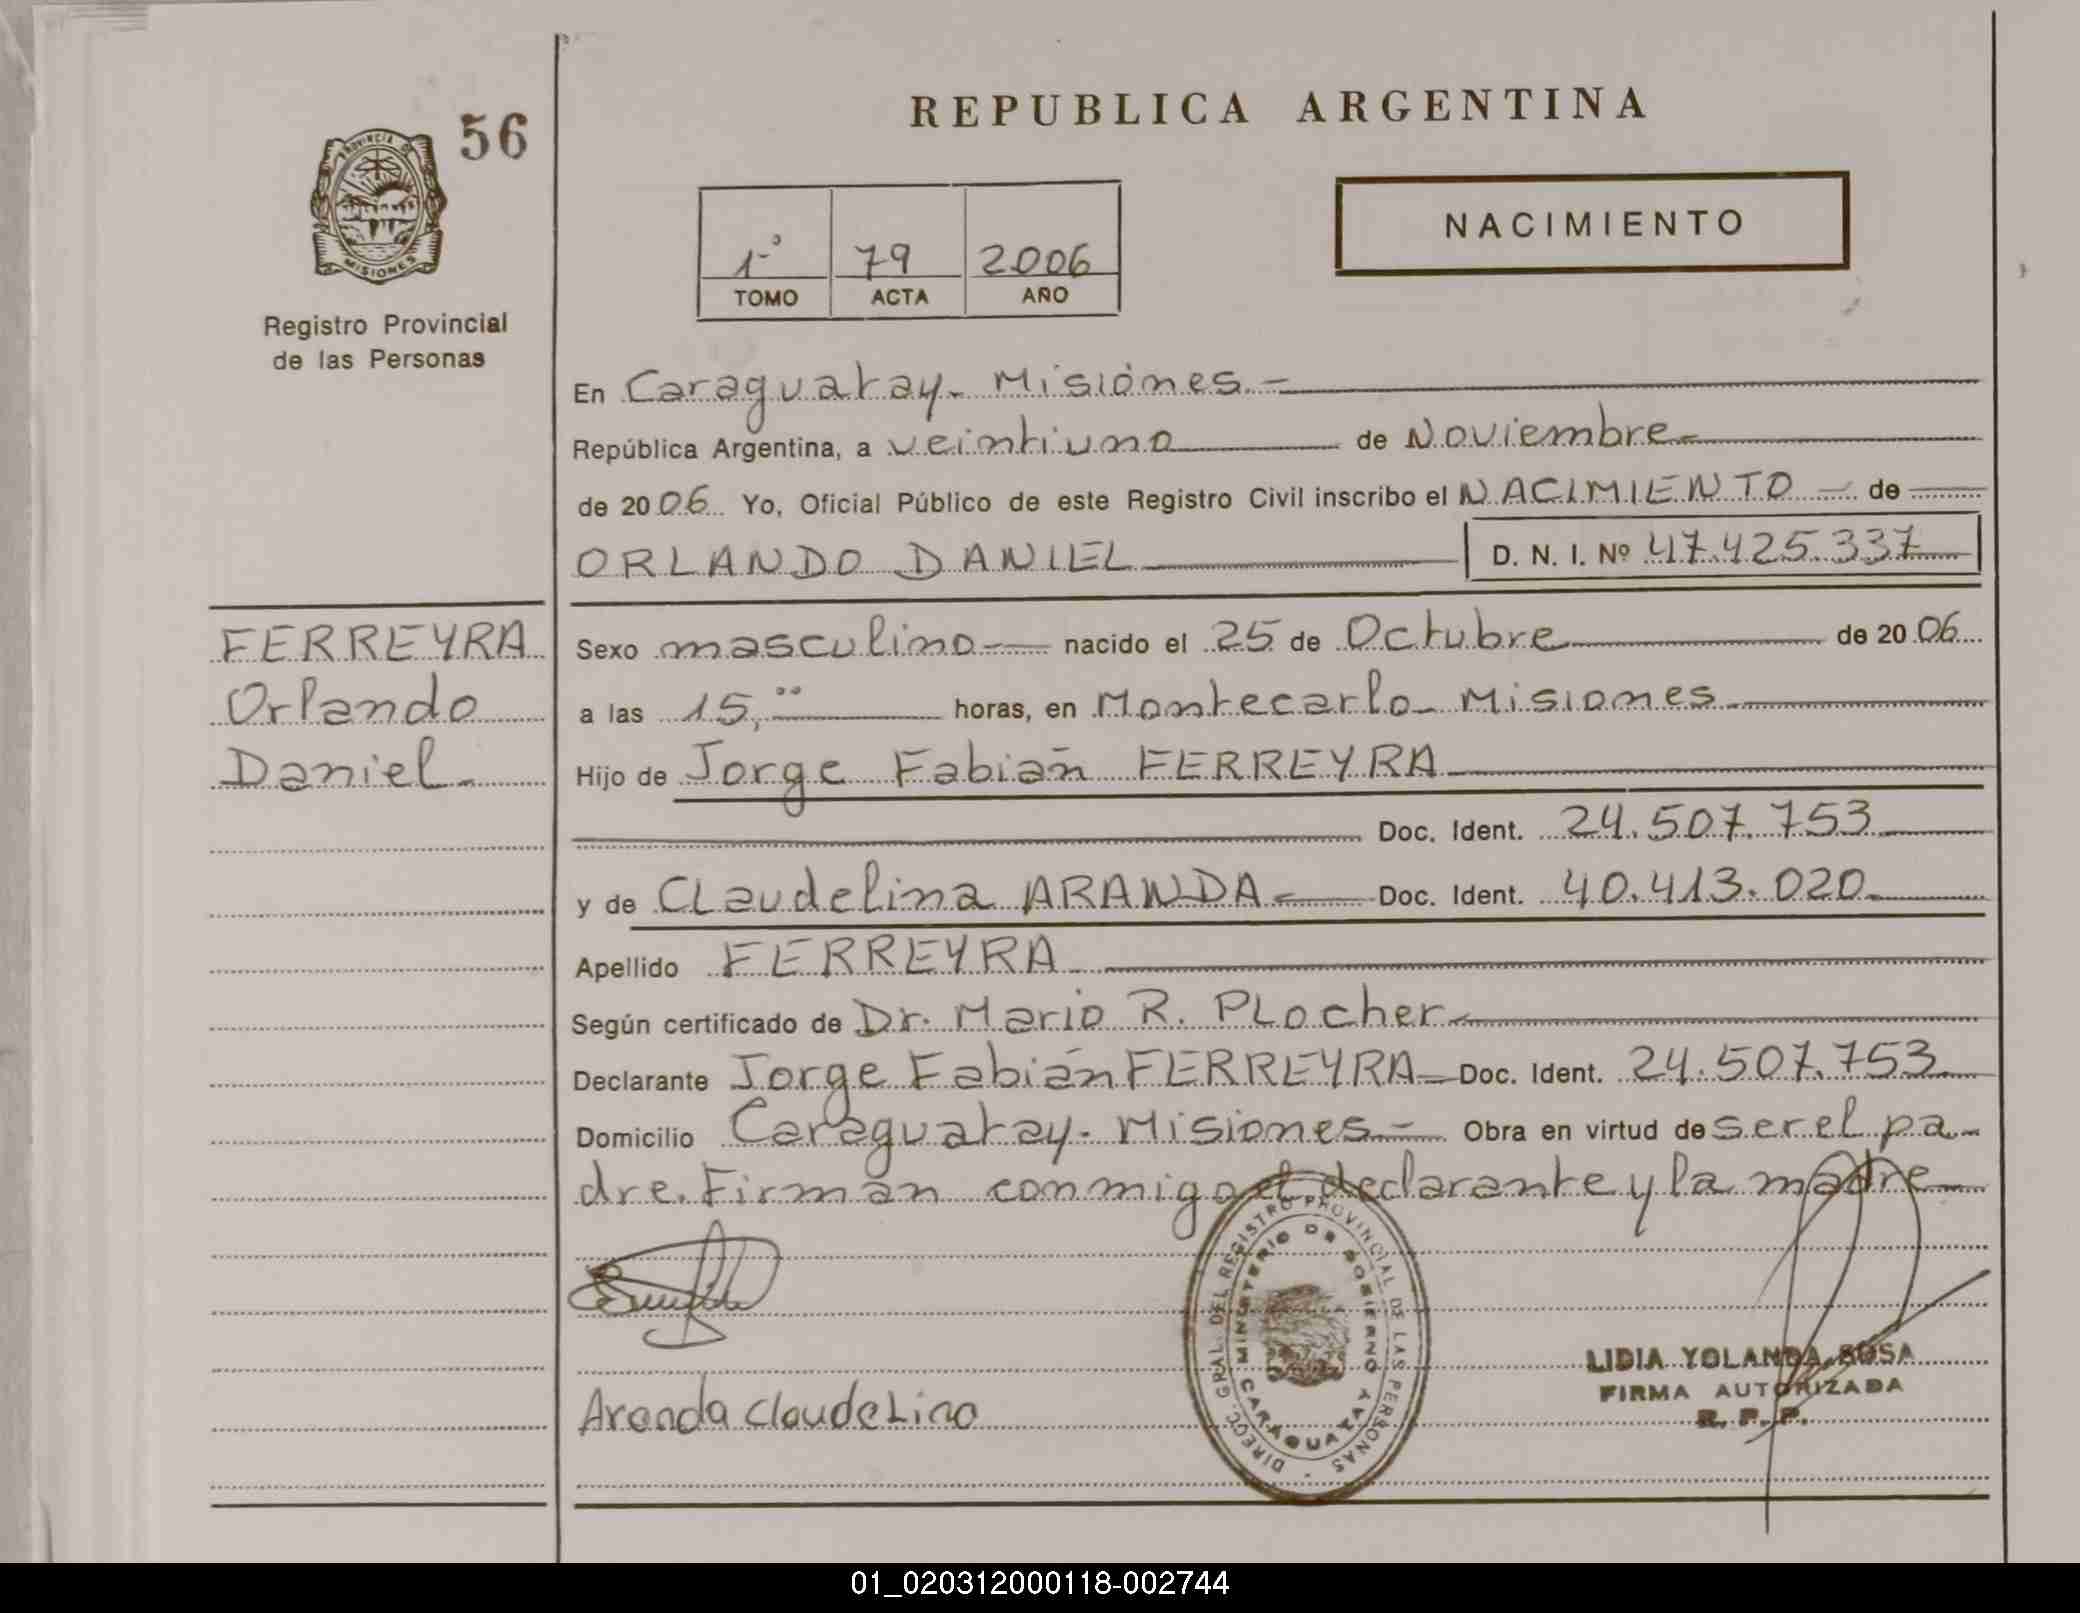 56
REPUBLICA ARGENTINA
PROVINCIA DE
MISIONES
Registro Provincial
de las Personas
1º 79 2006
TOMO ACTA AÑO
NACIMIENTO
En Caraguatay - Misiones -
República Argentina, a veintiuno de Noviembre
de 2006 Yo, Oficial Público de este Registro Civil inscribo el NACIMIENTO - de
ORLANDO DANIEL D. N. I. Nº 47.425.337
FERREYRA
Orlando
Daniel -
Sexo masculino nacido el 25 de Octubre de 2006
a las 15,00 horas, en Montecarlo - Misiones
Hijo de Jorge Fabián FERREYRA
Doc. Ident. 24.507.753
y de Claudelina ARANDA Doc. Ident. 40.413.020
Apellido FERREYRA
Según certificado de Dr. Mario R. PLocher
Declarante Jorge Fabián FERREYRA Doc. Ident. 24.507.753
Domicilio Caraguatay - Misiones - Obra en virtud de ser el pa-
dre. Firman conmigo el declarante y la madre
DIRECC. GRAL. DEL REGISTRO PROVINCIAL DE LAS PERSONAS
MINISTERIO DE GOBIERNO
CARAGUATAY
LIDIA YOLANDA SOSA
FIRMA AUTORIZADA
R. P. P.
Aranda Claudelina
01_020312000118-002744